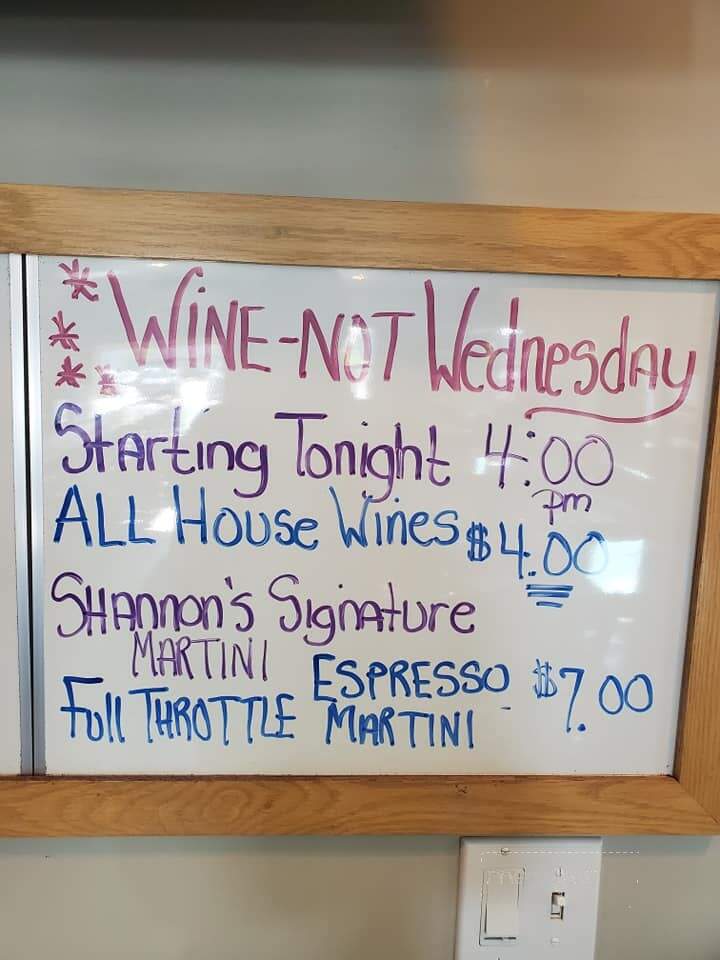 * WINE-NOT Wednesday
*
* *
Starting Tonight 4:00
pm
ALL House Wines $4.00
SHANNON'S SIGNATURE
MARTINI
Full THROTTLE ESPRESSO MARTINI $7.00